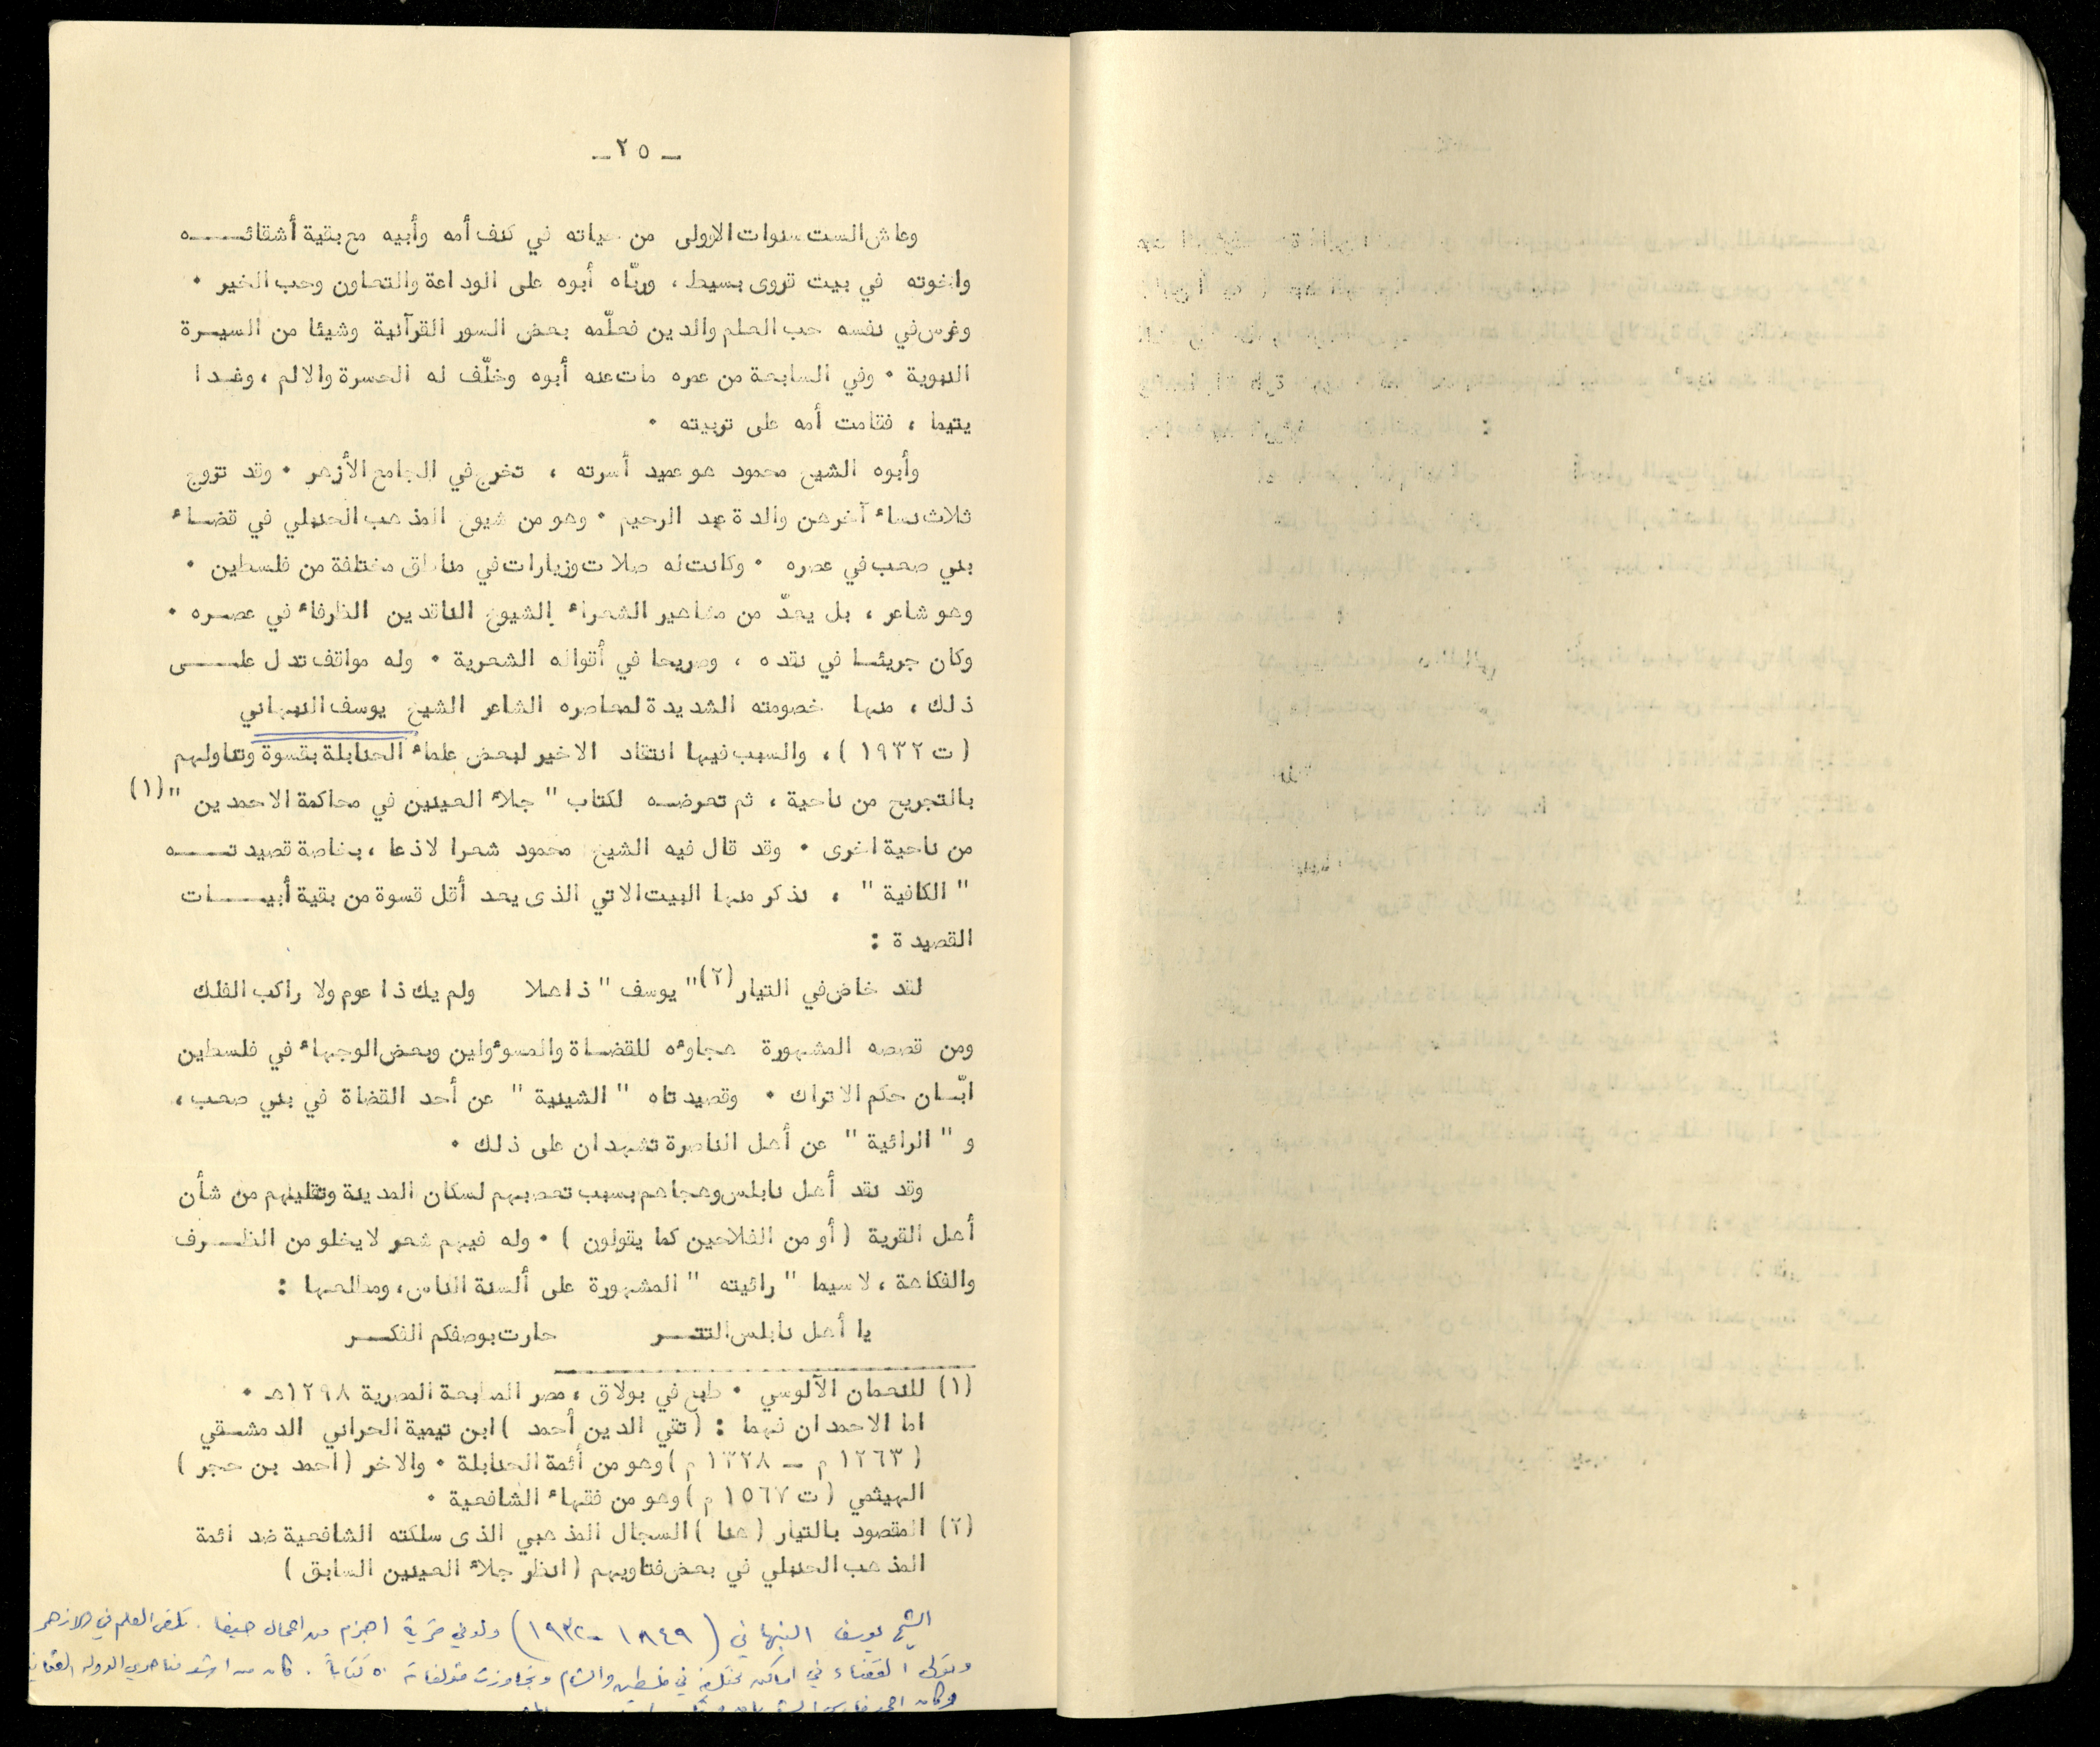 ــ ٢٥ ــ
وعاش الست سنوات الاولى من حياته في كنف أمه وأبيه مع بقية أشقائــــه
واخوته في بيت قروى بسيط ، وربّاه أبوه على الوداعة والتعاون وحب الخير ٠
وغرس في نفسه حب العلم والدين فعلّمه بعض السور القرآنية وشيئا من السيـرة
النبوية ٠ وفي السابعة من عمره مات عنه أبوه وخلّف له الحسرة والالم ، وغـدا
يتيما ، فقامت أمه على تربيته ٠
وأبوه الشيخ محمود هو عميد أسرته ، تخرج في الجامع الأزهر ٠ وقد تزوج
ثلاث نساء آخرهن والدة عبد الرحيم ٠ وهو من شيوخ المذهب الحنبلي في قضـاء
بني صعب في عصره ٠ وكانت له صلات وزيارات في مناطق مختلفة من فلسطين ٠
وهو شاعر ، بل يعدّ من مشاهير الشعراء الشيوخ الناقدين الظرفاء في عصـره ٠
وكان جريئـا في نقده ، وصريحا في أقواله الشعرية ٠ وله مواقف تدل علـــى
ذلك ، منها خصومته الشديدة لمعاصره الشاعر الشيخ يوسف النبهاني
( ت ١٩٣٢ ) ، والسبب فيها انتقاد الاخير لبعض علماء الحنابلة بقسوة وتناولهم
بالتجريح من ناحية ، ثم تعرضـه لكتاب " جلاء العينين في محاكمة الاحمدين " (١)
من ناحية اخرى ٠ وقد قال فيه الشيخ محمود شعرا لاذعا ، بخاصة قصيدتــــه
" الكافية " ، نذكر منها البيت الاتي الذى يعد أقل قسوة من بقية أبيــــات
القصيدة :
لقد خاض في التيار (٢) " يوسف " ذاهلا ولم يك ذا عوم ولا راكب الفلك
ومن قصصه المشهورة هجاوءه للقضـاة والمسوءولين وبعض الوجهاء في فلسطين
ابّـان حكم الاتراك ٠ وقصيدتاه " الشينية " عن أحد القضاة في بني صعب ،
و " الرائية " عن أهل الناصرة تشهدان على ذلك ٠
وقد نقد أهل نابلس وهجاهم بسبب تعصبهم لسكان المدينة وتقليلهم من شأن
أهل القرية ( أو من الفلاحين كما يقولون ) ٠ وله فيهم شعر لا يخلو من الظــرف
والفكاهة ، لا سيما " رائيته " المشهورة على ألسنة الناس ، ومطلعها :
يا أهل نابلس التتـــر حارت بوصفكم الفكـــر
(١) للنعمان الآلوسي ٠ طبع في بولاق ، مصر المطبعة المصرية ١٢٩٨هـ ٠
اما الاحمدان فهما : ( تقي الدين أحمد ) ابن تيمية الحراني الدمشـقي
( ١٢٦٣ م ــ ١٣٢٨ م ) وهو من أئمة الحنابلة ٠ والاخر ( احمد بن حجر )
الهيثمي ( ت ١٥٦٧ م ) وهو من فقهاء الشافعية ٠
(٢) المقصود بالتيار ( هنا ) السجال المذهبي الذى سلكته الشافعية ضد ائمة
المذهب الحنبلي في بعض فتاويهم ( انظر جلاء العينين السابق )
الشيخ يوسف النبهاني ( ١٨٤٩ - ١٩٣٢ ) ولد في قرية اجزم من اعمال حيفا . تلقى العلم في الازهر
وتولى القضاء في اماكن مختلفة في فلسطين والشام وتجاوزت مؤلفاته ٥٠ كتاباً . كان من اشد مناصري الدولة
وكان احمد فارس